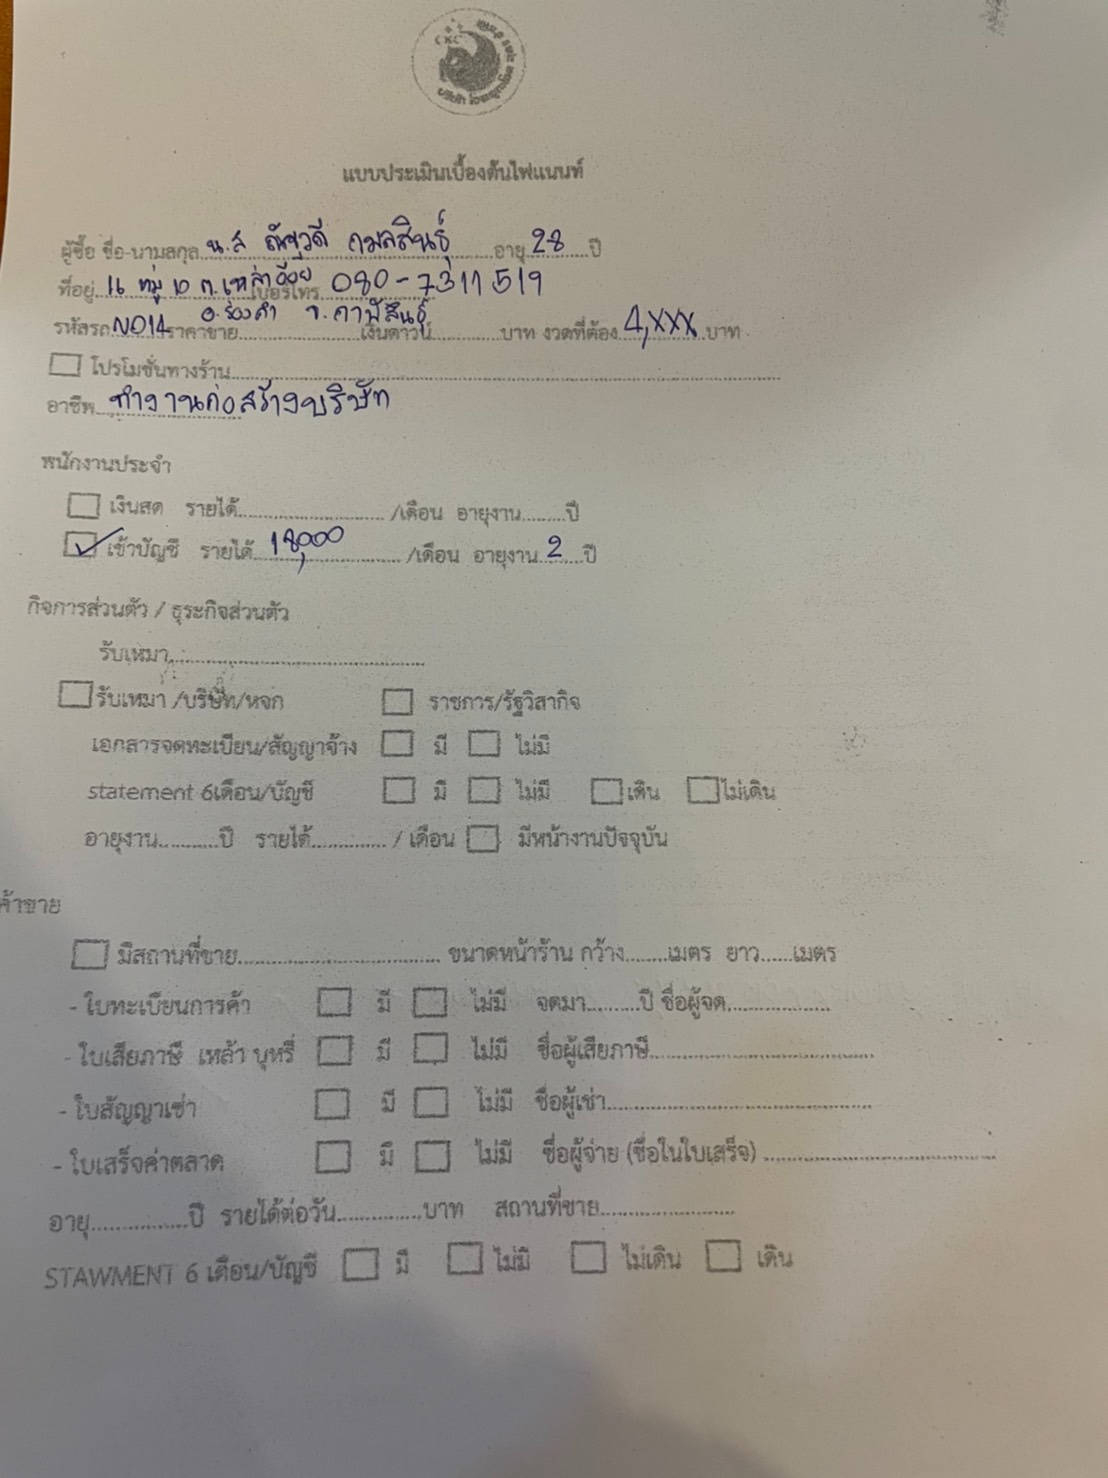 CKC
แบบประเมินเบื้องต้นไฟแนนท์
ผู้ซื้อ ชื่อ-นามสกุล น.ส ณัฐวดี กมลสินธุ์ อายุ 28 ปี
ที่อยู่ 16 หมู่ 10 ต.เหล่าอ้อย เบอร์โทร 080-7311519
อ.ร่องคำ จ.กาฬสินธุ์
รหัสรถ NO14 ราคาขาย เงินดาวน์ บาท งวดที่ต้อง 4,xxx บาท
โปรโมชั่นทางร้าน
อาชีพ ทำงานก่อสร้างบริษัท
พนักงานประจำ
เงินสด รายได้ /เดือน อายุงาน ปี
เข้าบัญชี รายได้ 18,000 /เดือน อายุงาน 2 ปี
กิจการส่วนตัว / ธุระกิจส่วนตัว
รับเหมา
รับเหมา /บริษัท/หจก ราชการ/รัฐวิสากิจ
เอกสารจดทะเบียน/สัญญาจ้าง มี ไม่มี
statement 6เดือน/บัญชี มี ไม่มี เดิน ไม่เดิน
อายุงาน ปี รายได้ / เดือน มีหน้างานปัจจุบัน
ค้าขาย
มีสถานที่ขาย ขนาดหน้าร้าน กว้าง เมตร ยาว เมตร
- ใบทะเบียนการค้า มี ไม่มี จดมา ปี ชื่อผู้จด
- ใบเสียภาษี เหล้า บุหรี่ มี ไม่มี ชื่อผู้เสียภาษี
- ใบสัญญาเช่า มี ไม่มี ชื่อผู้เช่า
- ใบเสร็จค่าตลาด มี ไม่มี ชื่อผู้จ่าย (ชื่อในใบเสร็จ)
อายุ ปี รายได้ต่อวัน บาท สถานที่ขาย
STAWMENT 6 เดือน/บัญชี มี ไม่มี ไม่เดิน เดิน